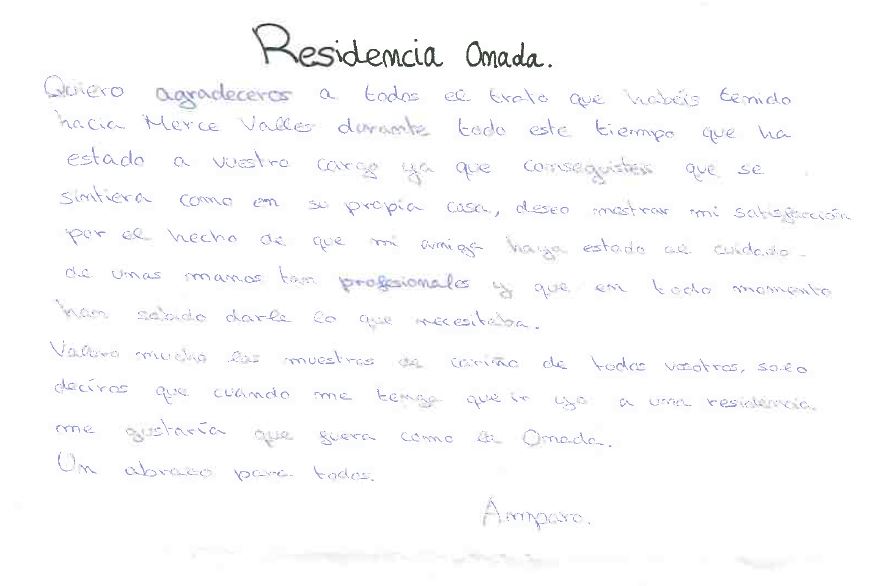 Residencia Omada.
Quiero agradeceros a todos el trato que habeis tenido
hacia Merce Valles durante todo este tiempo que ha
estado a vuestro cargo ya que conseguisteis que se
sintiera como en su propia casa, deseo mostrar mi satisfacción
por el hecho de que mi amiga haya estado al cuidado
de unas manos tan profesionales y que en todo momento
han sabido darle lo que necesitaba.
Valoro mucho las muestras de cariño de todos vosotros, solo
deciros que cuando me tenga que ir yo a una residencia
me gustaría que fuera como la Omada.
Un abrazo para todos.
Amparo.